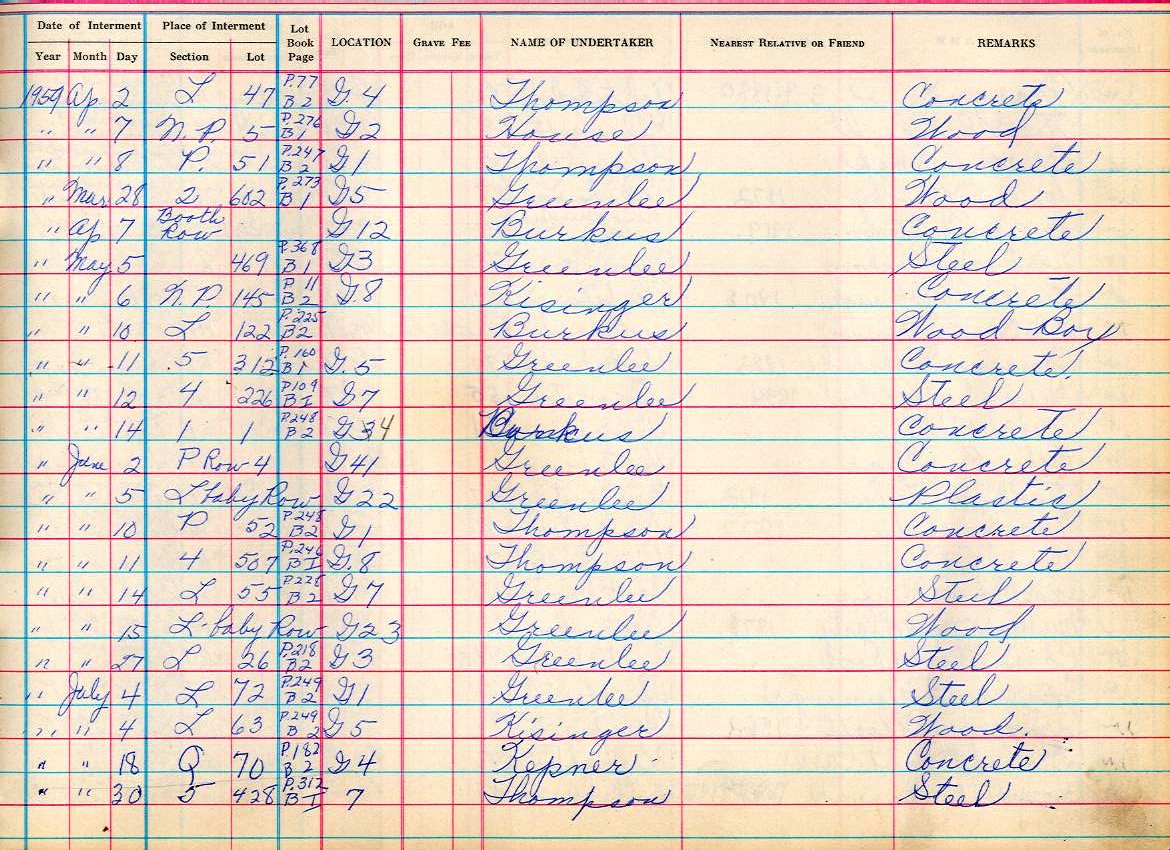 Date of Interment Place of Interment Lot Book Page LOCATION GRAVE FEE NAME OF UNDERTAKER NEAREST RELATIVE OR FRIEND REMARKS
Year Month Day Section Lot
1959 Ap 2 L 47 P.77 B 2 G. 4 Thompson Concrete
" " 7 N.P. 5 P.276 B 1 G2 House Wood
" " 8 P. 51 P.247 B 2 G1 Thompson Concrete
" Mar. 28 2 602 P. 273 B 1 G5 Greenlee Wood
" Ap 7 Booth Row G12 Burkus Concrete
" May 5 469 P.368 B 1 G3 Greenlee Steel
" " 6 N.P. 145 P 11 B 2 G.8 Kisinger Concrete
" " 10 L 122 P.225 B2 Burkus Wood Box
" " 11 5 312 P. 160 B 1 G. 5 Greenlee Concrete.
" " 12 4 226 P109 B I G7 Greenlee Steel
" " 14 1 1 P248 B 2 G34 Burkus Concrete
" June 2 P Row 4 G41 Greenlee Concrete
" " 5 L baby Row G22 Greenlee Plastic
" " 10 P 52 P.248 B2 G1 Thompson Concrete
" " 11 4 507 P.246 B I G.8 Thompson Concrete
" " 14 L 55 P.228 B 2 G7 Greenlee Steel
" " 15 L-baby Row G23 Greenlee Wood
" " 27 L 26 P.218 B2 G3 Greenlee Steel
" July 4 L 72 P.249 B 2 G1 Greenlee Steel
" " 4 L 63 P.249 B 2 G5 Kisinger Wood.
" " 18 Q 70 P.182 B 2 G4 Kepner Concrete
" " 30 5 428 P.312 B I 7 Thompson Steel